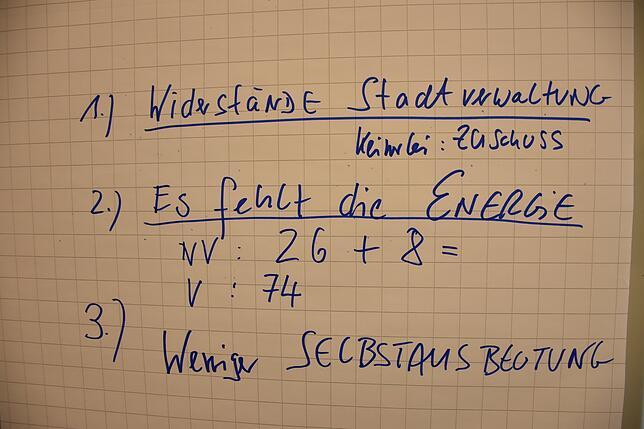 1.) Widerstände Stadtverwaltung
Keinerlei: Zuschuss
2.) Es fehlt die Energie
NV: 26 + 8 =
V: 74
3.) Weniger SELBSTAUSBEUTUNG